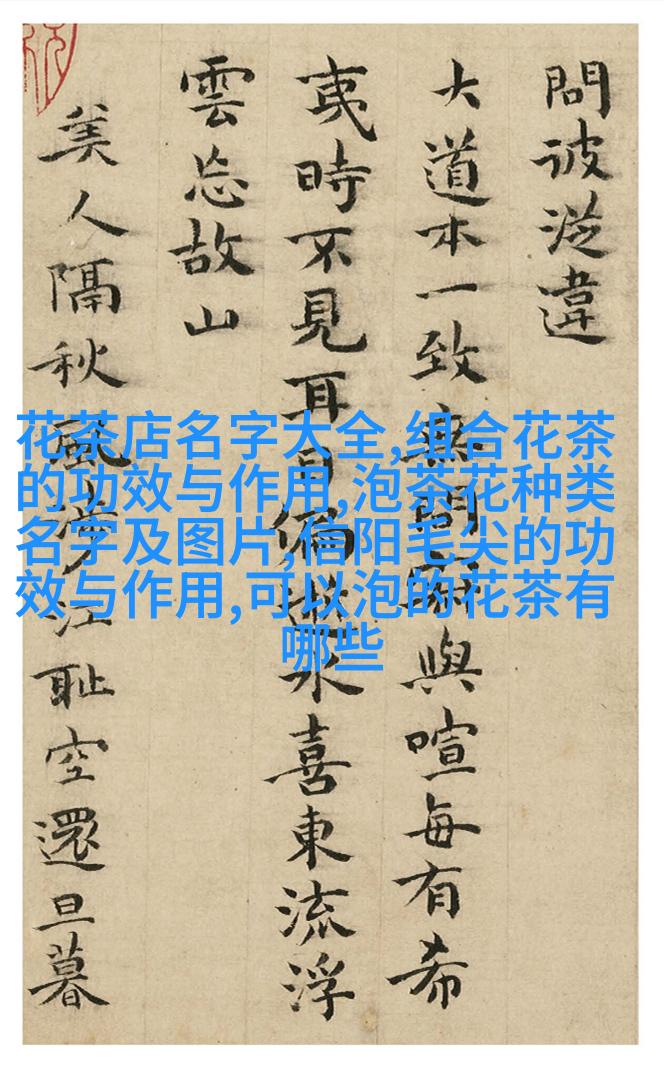 問彼從違
大道本一致無間與喧每有希
夷時不見耳目偏水喜東流浮
雲忘故山
美人隔秋風江耻空還旦暮
花茶店名字大全,组合花茶
的功效与作用,泡茶花种类
名字及图片,信阳毛尖的功
效与作用,可以泡的花茶有
哪些